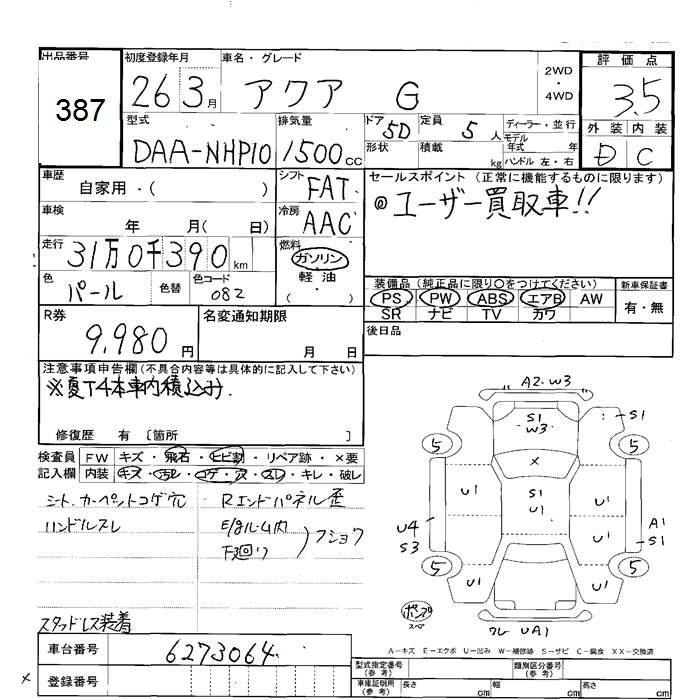 出品番号
387
初度登録年月
26 3月
車名・グレード
アクア G
2WD
・
4WD
評価点
3.5
型式
DAA-NHP10
排気量
1500cc
ドア 5D
形状
定員 5人
積載 kg
ディーラー・並行
モデル
年式 年
ハンドル 左・右
外装 内装
D C
車歴
自家用・( )
シフト
FAT
セールスポイント (正常に機能するものに限ります)
◎ユーザー買取車!!
車検
年 月( 日)
冷房
AAC
走行
31万0千390km
燃料
ガソリン
・
軽油
( )
色
パール
色替
色コード
082
装備品 (純正品に限り○をつけてください)
PS PW ABS エアB AW
SR ナビ TV カワ
新車保証書
有・無
R券
9,980円
名変通知期限
月 日
後日品
注意事項申告欄(不具合内容等は具体的に記入して下さい)
※夏T4本車内積込み.
修復歴 有 〔箇所 〕
検査員
記入欄
FW キズ・飛石・ヒビ割・リペア跡・×要
内装 キズ・汚レ・コゲ・穴・スレ・キレ・破レ
シート、カーペットコゲ穴
ハンドルスレ
Rエンドパネル歪
E/gルーム内
下廻り
フショク
スタッドレス装着
A2.W3
S1
W3
S1
5
5
×
U1
S1
U1
U1
U4
S3
A1
S1
U1
5
5
U1
U1
ポンプ
スペア
ワレ UA1
A-キズ E-エクボ U-凹み W-補修跡 S-サビ C-腐食 XX-交換済
車台番号
6273064
登録番号
型式指定番号
(参考)
類別区分番号
(参考)
車庫証明用
(参考)
長さ cm
幅 cm
高さ cm